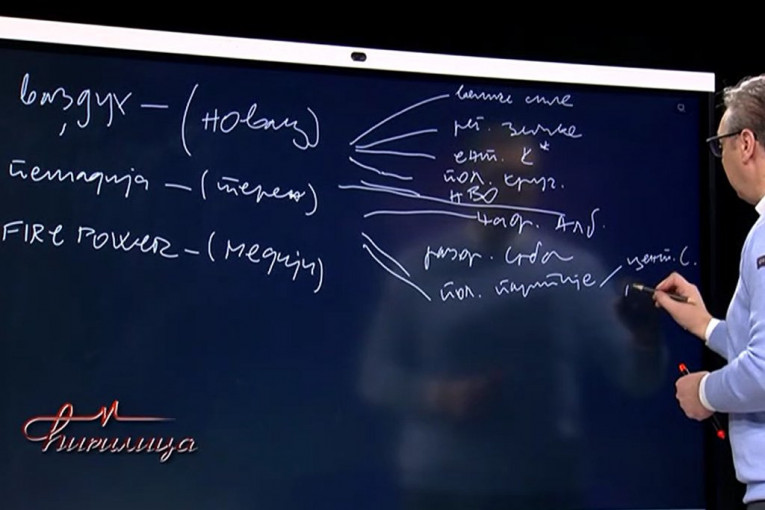 ваздух – (новац)
пешадија – (терен)
FIRE POWER – (медији)
велике силе
рег. земље
ент. К*
пол. круг.
НВО
чаор. Алб.
разор. Срба
пол. партије
цент. С.
Ћирилица